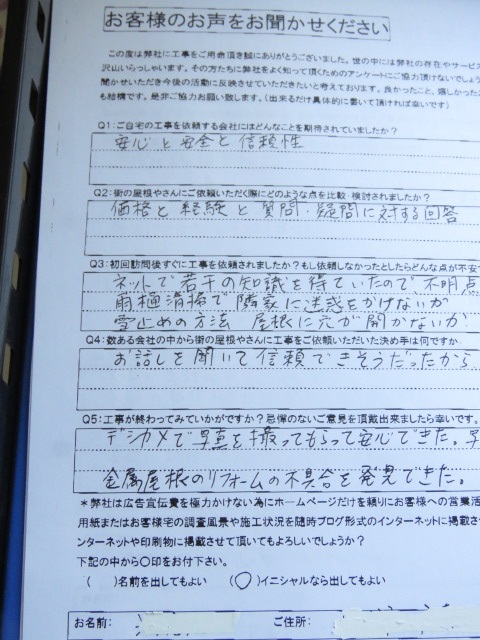 お客様のお声をお聞かせください
この度は弊社に工事をご用命頂き誠にありがとうございました。世の中には弊社の存在やサービス
沢山いらっしゃいます。その方たちに弊社をよく知って頂くためのアンケートにご協力頂けないでしょう
聞かせいただき今後の活動に反映させていただきたいと考えております。良かったこと、嬉しかったこ
も結構です。是非ご協力お願い致します。(出来るだけ具体的に書いて頂ければ幸いです)
Q1:ご自宅の工事を依頼する会社にはどんなことを期待されていましたか?
安心と安全と信頼性
Q2:街の屋根やさんにご依頼いただく際にどのような点を比較・検討されましたか?
価格と経験と質問・疑問に対する回答
Q3:初回訪問後すぐに工事を依頼されましたか?もし依頼しなかったとしたらどんな点が不安で
ネットで若干の知識を得ていたので不明点
雨樋清掃で隣家に迷惑をかけないか
雪止めの方法 屋根に穴が開かないか
Q4:数ある会社の中から街の屋根やさんに工事をご依頼いただいた決め手は何ですか
お話しを聞いて信頼できそうだったから
Q5:工事が終わってみていかがですか?忌憚のないご意見を頂戴出来ましたら幸いです。
デジカメで写真を撮ってもらって安心できた。
金属屋根のリフォームの不具合を発見できた。
*弊社は広告宣伝費を極力かけない為にホームページだけを頼りにお客様への営業活
用紙またはお客様宅の調査風景や施工状況を随時ブログ形式のインターネットに掲載させ
ンターネットや印刷物に掲載させて頂いてもよろしいでしょうか?
下記の中から〇印をお付下さい。
( )名前を出してもよい (〇)イニシャルなら出してもよい
お名前: ご住所: